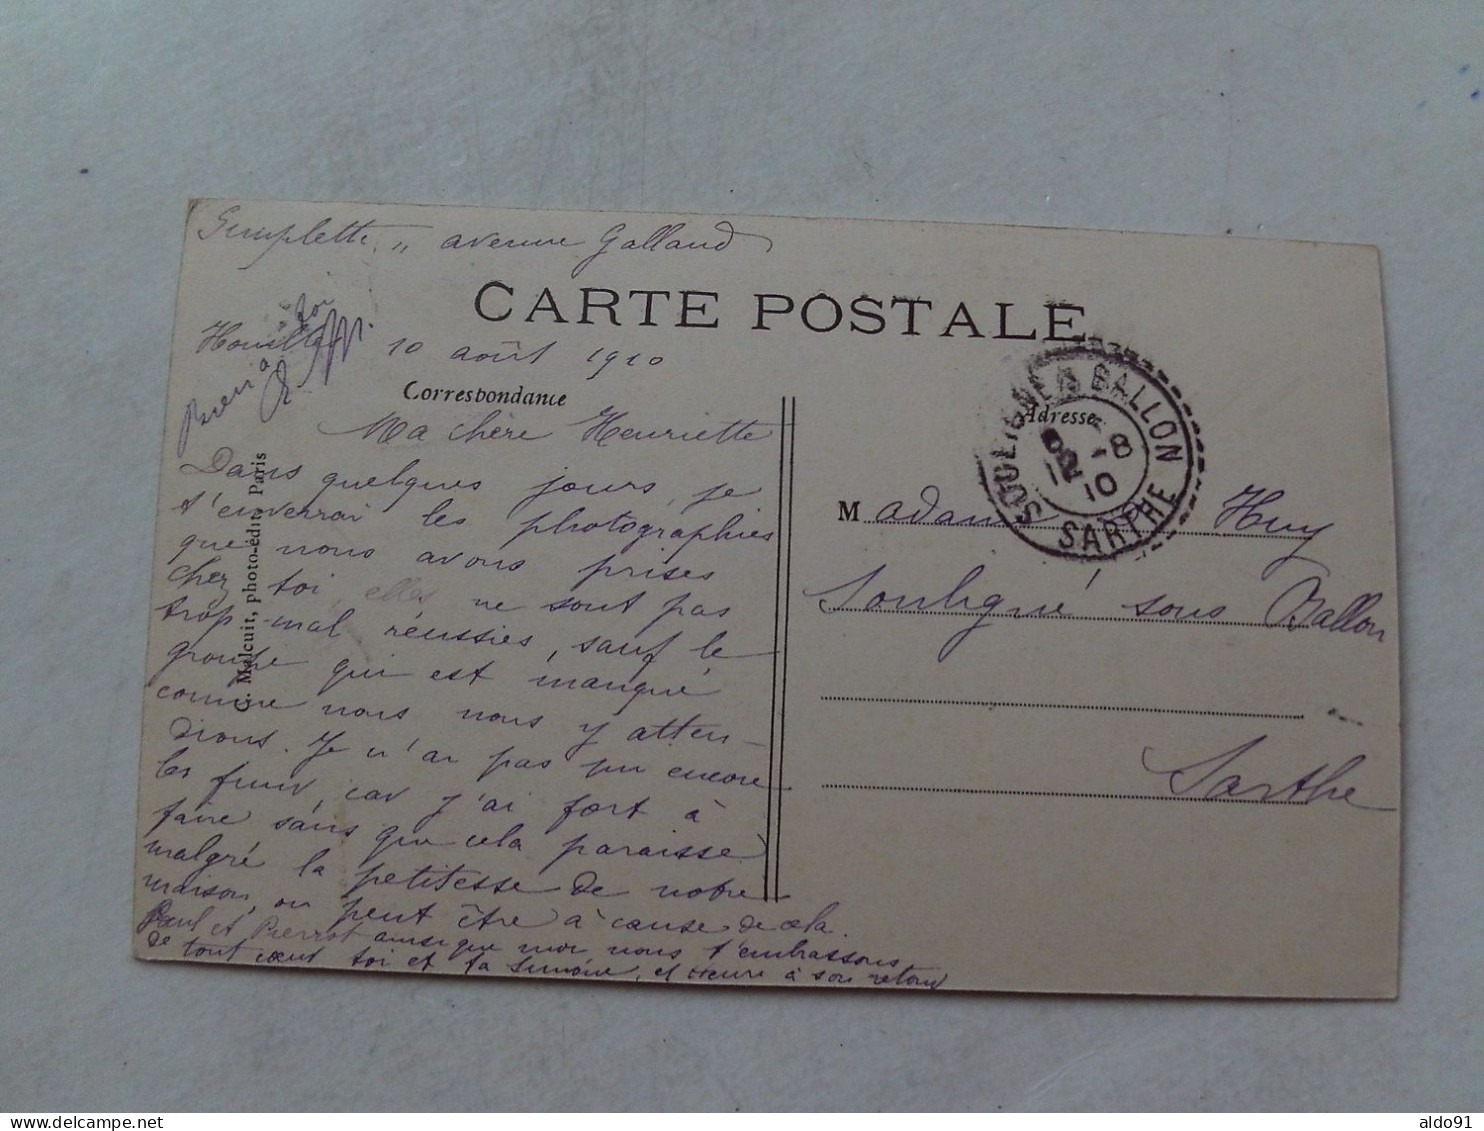 Simplette ,, avenue Galland
CARTE POSTALE
Houilles 10 août 1910
Bien à toi
Correspondance
Adresse
SOULIGNÉ S BALLON
-8
10
SARTHE
Ma chère Henriette
Dans quelques jours, je
t'enverrai les photographies
que nous avons prises
chez toi, elles ne sont pas
trop mal réussies, sauf le
groupe qui est manqué
comme nous nous y atten-
dions. Je n'ai pas pu encore
les finir car j'ai fort à
faire sans que cela paraisse
malgré la petitesse de notre
maison, ou peut être à cause de cela.
Paul et Pierrot ainsi que moi nous t'embrassons
de tout cœur toi et ta Simone, et à son retour
C. Malcuit, photo-édit. Paris
Madame Huy
Souligné sous Ballon
Sarthe
aldo91